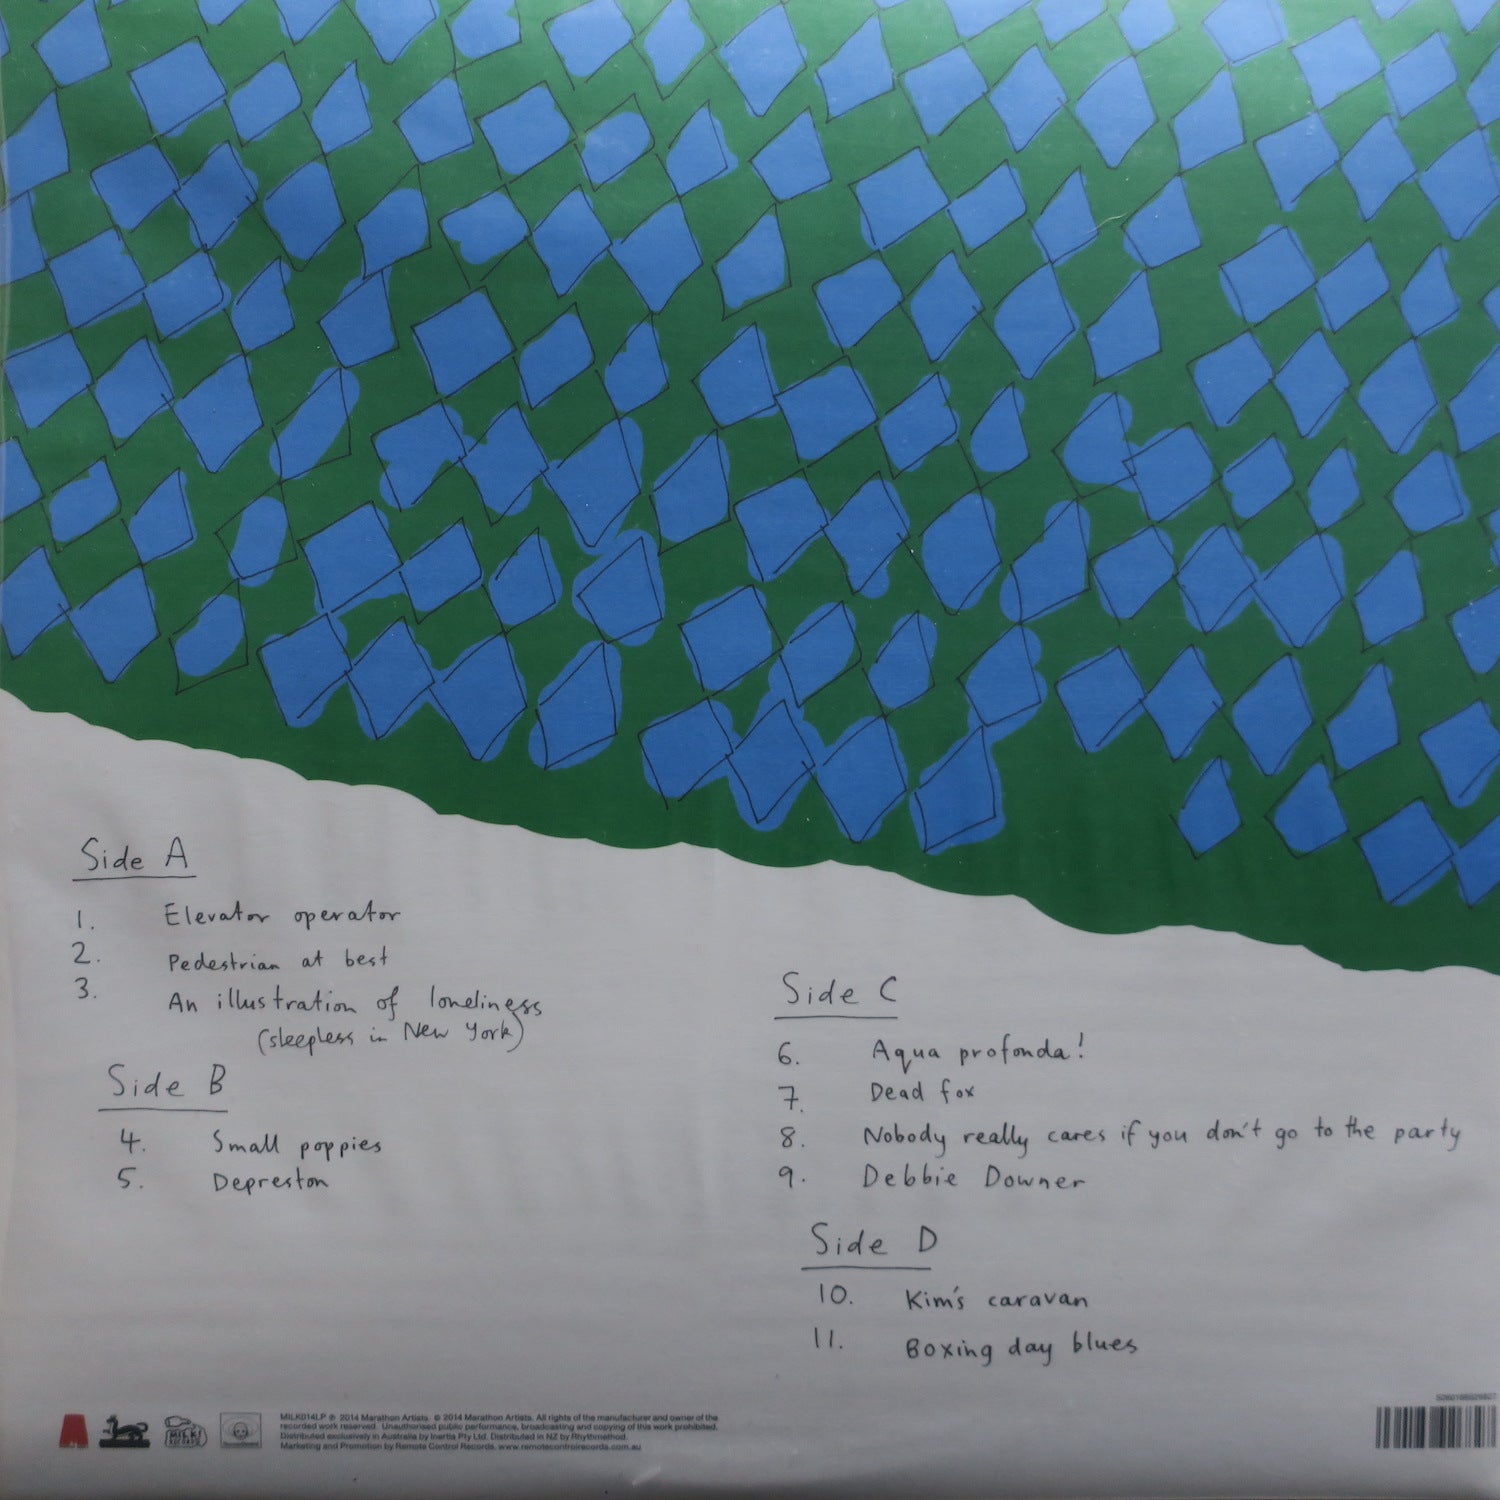 Side A
1. Elevator operator
2. Pedestrian at best
3. An illustration of loneliness
(sleepless in New York)
Side B
4. Small poppies
5. Depreston
Side C
6. Aqua profonda!
7. Dead fox
8. Nobody really cares if you don't go to the party
9. Debbie Downer
Side D
10. Kim's caravan
11. Boxing day blues
MILK! RECORDS
MILK014LP ℗ 2014 Marathon Artists. © 2014 Marathon Artists. All rights of the manufacturer and owner of the
recorded work reserved. Unauthorised public performance, broadcasting and copying of this work prohibited.
Distributed exclusively in Australia by Inertia Pty Ltd. Distributed in NZ by Rhythmethod.
Marketing and Promotion by Remote Control Records. www.remotecontrolrecords.com.au